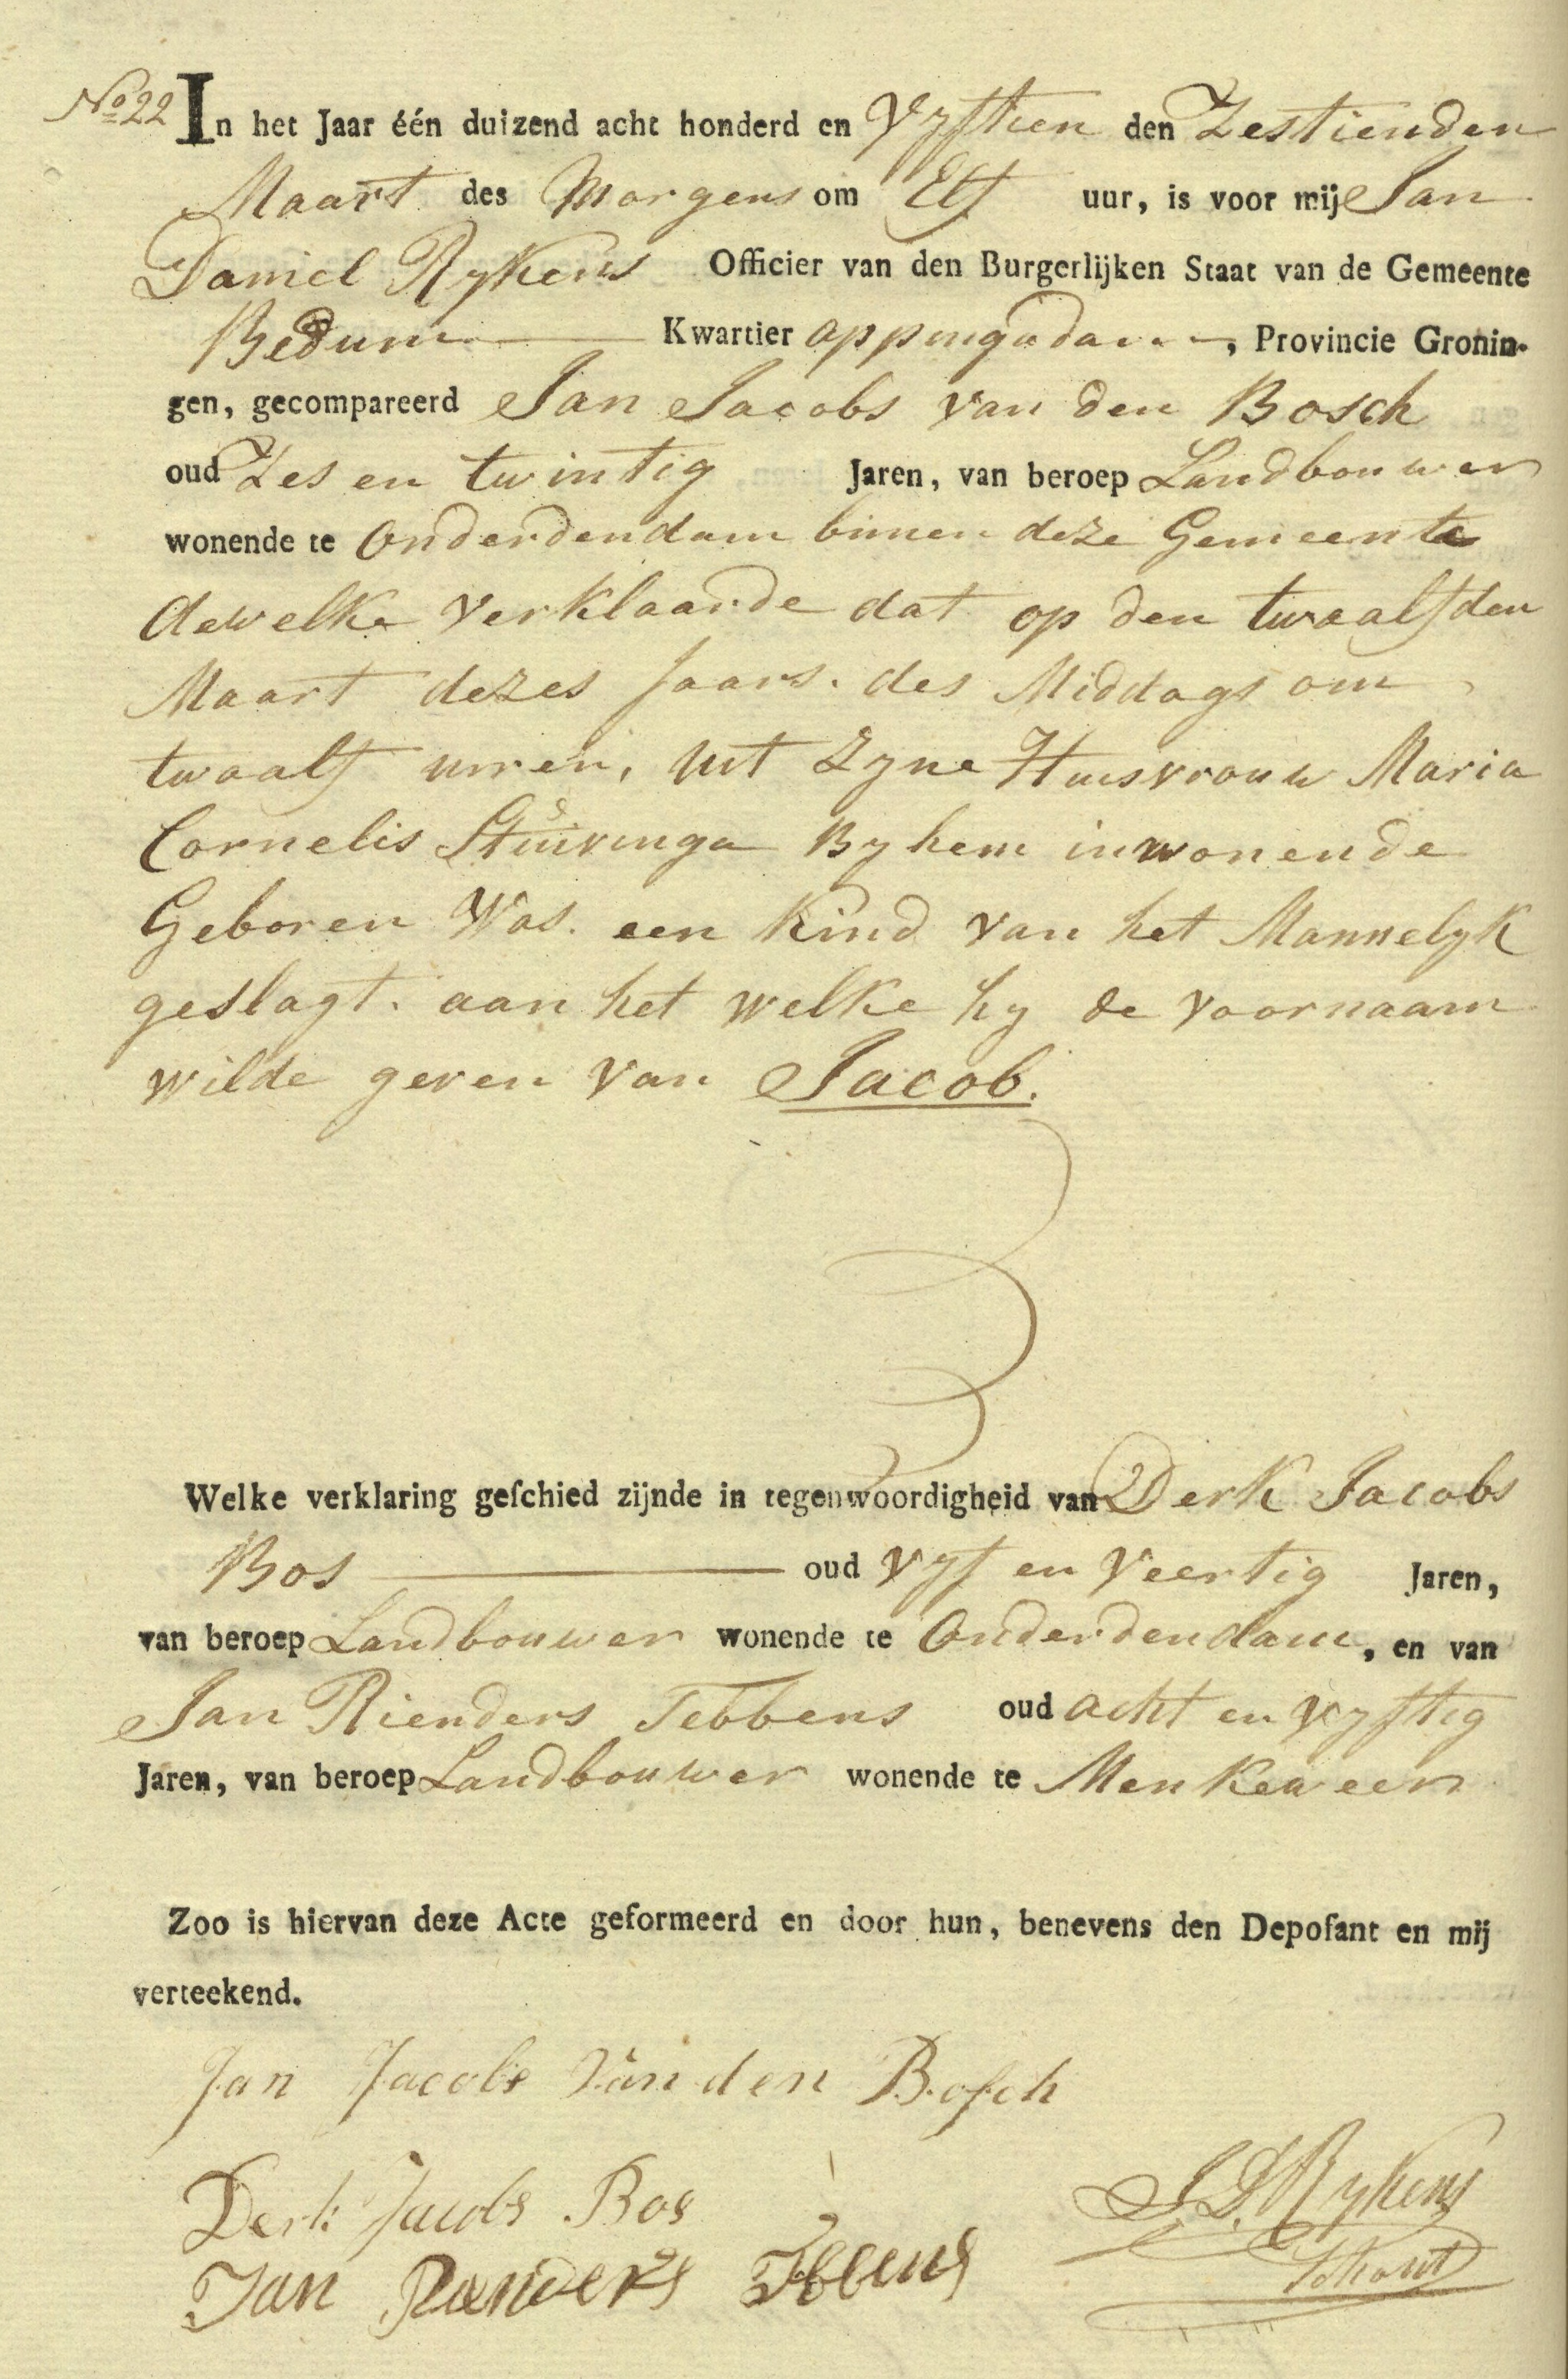 No 22 In het Jaar één duizend acht honderd en Vyftien den Zestienden
Maart des Morgens om Elf uur, is voor mij Jan
Daniel Rykens Officier van den Burgerlijken Staat van de Gemeente
Bedum Kwartier appingadam, Provincie Gronin-
gen, gecompareerd Jan Jacobs van den Bosch
oud Zes en twintig Jaren, van beroep Landbouwer
wonende te Onderdendam binnen deze Gemeente
dewelke verklaarde dat op den twaalfden
Maart dezes Jaars. des Middags om
twaalf uren, uit Zyne Huisvrouw Maria
Cornelis Stuivinga By hem inwonende
Geboren Was. een Kind van het Mannelyk
geslagt. aan het welke hy de voornaam
wilde geven van Jacob.
Welke verklaring geſchied zijnde in tegenwoordigheid van Derk Jacobs
Bos oud vyf en veertig Jaren,
van beroep Landbouwer wonende te Onderdendam, en van
Jan Rienders Tebbens oud acht en vyftig
Jaren, van beroep Landbouwer wonende te Menkeweer
Zoo is hiervan deze Acte geformeerd en door hun, benevens den Depoſant en mij
verteekend.
Jan Jacobs Van den Boſch
Derk Jacobs Bos
J. D. Rykens
Jan Rienders Tebbens
Schout